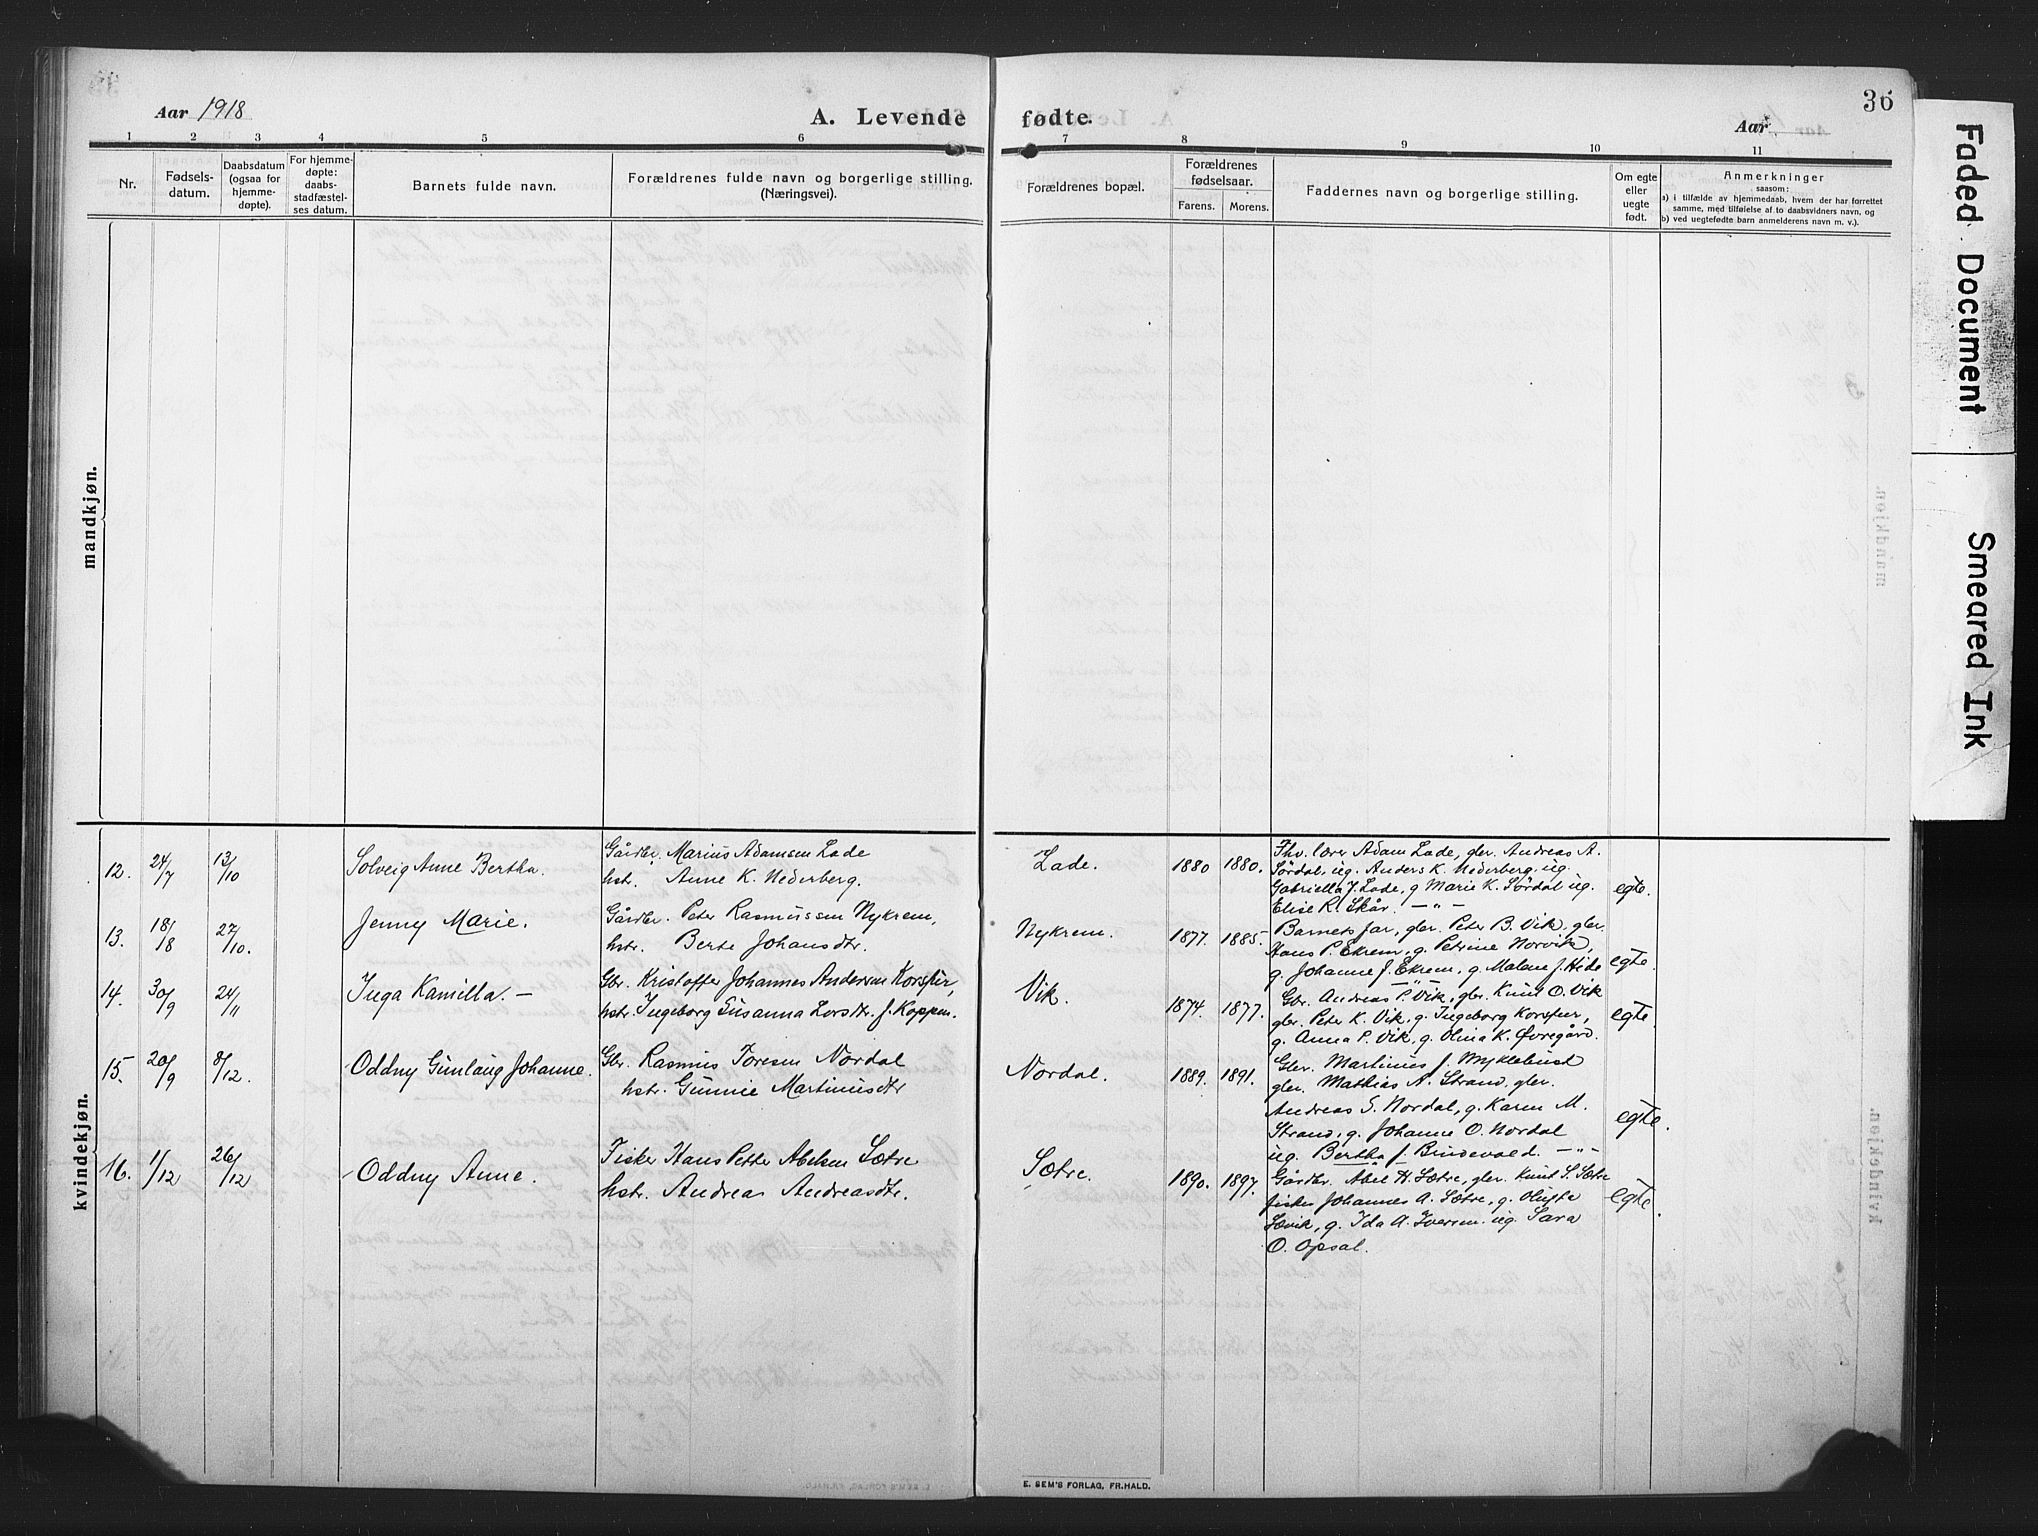 36
Aar 1918
A. Levende
fødte.
Aar
1 2 3 4 5 6
7 8 9 10 11
Nr.
Fødsels-
datum.
Daabsdatum
(ogsaa for
hjemme-
døpte).
For hjemme-
døpte:
daabs-
stadfæstel-
ses datum.
Barnets fulde navn.
Forældrenes fulde navn og borgerlige stilling.
(Næringsvei).
Forældrenes bopæl.
Forældrenes
fødselsaar.
Farens. Morens.
Faddernes navn og borgerlige stilling.
Om egte
eller
uegte
født.
Anmerkninger
saasom:
a) i tilfælde av hjemmedaab, hvem der har forrettet
samme, med tilføielse af to daabsvidners navn, og
b) ved uegtefødte barn anmelderens navn m. v.).
mandkjøn.
kvindekjøn.
12. 24/7 13/10
Solveig Anne Bertha.
Gårdbr. Marius Adamsen Lade
hstr. Anne K. Nederberg.
Lade.
1880 1880.
Fhv. lærer Adam Lade, gbr. Andreas A.
Sørdal, ug. Anders K. Nederberg, ug.
Gabriella J. Lade, g Marie K. Sørdal ug.
Elise R. Skår. — " —
egte.
13. 18/8 27/10.
Jenny Marie.
Gårdbr. Peter Rasmussen Nykrem,
hstr. Berte Johansdtr.
Nykrem.
1877. 1885.
Barnets far, gbr. Peter B. Vik, gbr.
Hans P. Ekrem, g. Petrine Norvik,
g. Johanne J. Ekrem, g. Malene J. Hide
— " —
egte.
14. 30/9 24/11
Inga Kamilla. —
Gbr. Kristoffer Johannes Andersen Korsfur,
hstr. Ingeborg Susanna Larsdtr. f. Koppen.
Vik.
1874. 1877.
Gbr. Andreas P. Vik, gbr. Knut O. Vik
gbr. Peter K. Vik, g. Ingeborg Korsfur,
g. Anna P. Vik, g. Olina K. Øvregård.
egte.
15. 20/9 8/12.
Oddny Gunlaug Johanne.
Gbr. Rasmus Toresen Nordal
hstr. Gunnie Martinusdtr
Nordal.
1889. 1891.
Gbr. Martinus J. Myklebust
gbr. Mathias A. Strand, gbr.
Andreas S. Nordal, g. Karen M.
Strand, g. Johanne O. Nordal
ug. Bertha J. Brudevold. — " —
egte.
16. 1/12 26/12
Oddny Anne.
Fisker Hans Petter Abelsen Sætre
hstr. Andrea Andreasdtr.
Sætre.
1890. 1897.
Gårdbr. Abel H. Sætre, gbr. Knut S. Sætre
fisker Johannes A. Sætre, g. Olufta
Sævik, g. Ida A. Iversen. ug. Sara
O. Opsal.
egte.
E. SEM'S FORLAG, FR.HALD.
Faded Document
Smeared Ink